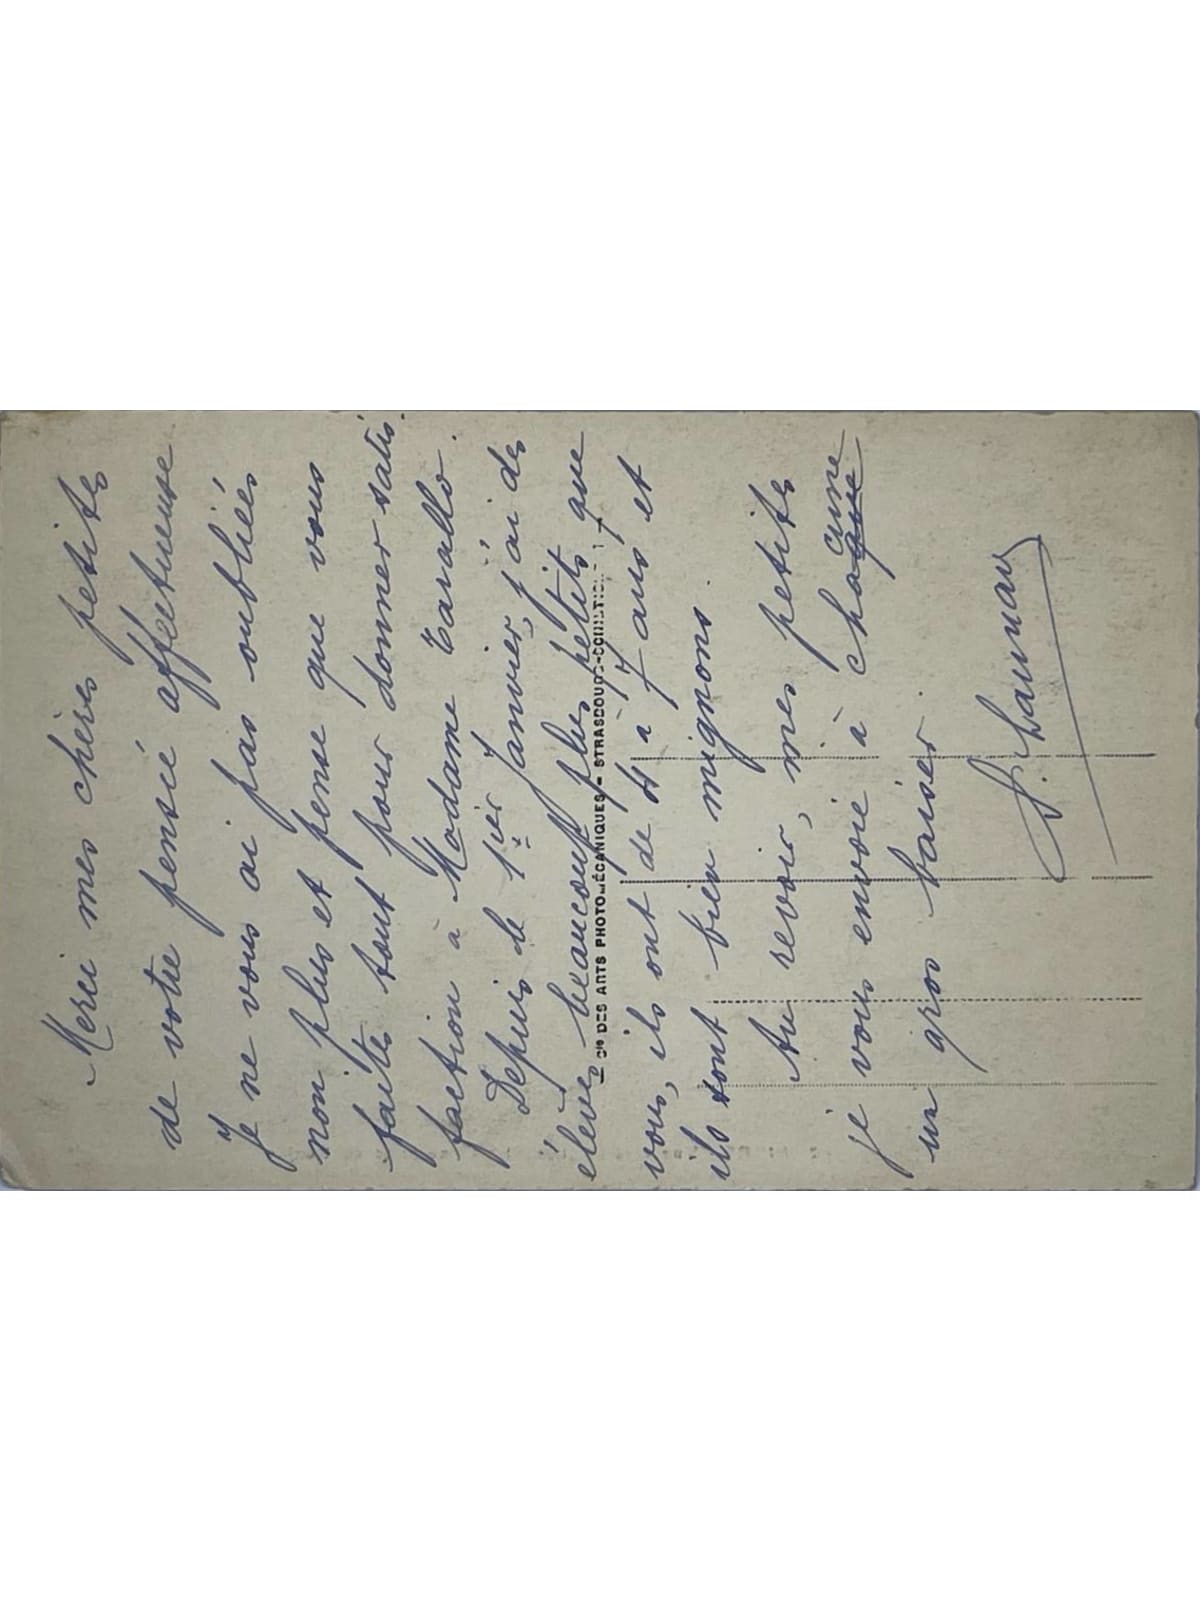 Merci mes chères petites
de votre pensée affectueuse
Je ne vous ai pas oubliées
non plus et pense que vous
faites tout pour donner satis
faction à Madame Carallo.
Depuis le 1ier Janvier, j'ai des
élèves beaucoup plus petits que
vous, ils ont de 4 à 7 ans et
ils sont bien mignons.
Au revoir, mes petites
je vous envoie à chacune
un gros baiser.
Cie DES ARTS PHOTOMÉCANIQUES - STRASBOURG-